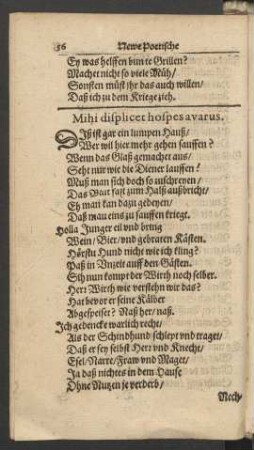 56 Newe Poetische
Ey was helffen bunte Grillen?
Machet nicht so viele Müh/
Sonsten müst jhr das auch willen/
Daß ich zu dem Kriege zieh.
Mihi displicet hospes avarus.
DIß ist gar ein lumpen Hauß/
Wer wil hier mehr gehen sauffen?
Wenn das Glaß gemachet aus/
Seht nur wie die Diener lauffen!
Muß man sich doch so inschreyen/
Das Blut fast zum Halß außbricht/
Ey man kan dazu gedeyen/
Daß mau eins zu sauffen kriegt.
Holla Junger eil vnd bring
Wein/ Bier/ vnd gebraten Kästen.
Hörstu Hund nicht wie ich kling?
Paß in Vnzeit auff den Gästen.
Sih nun kompt der Wirth noch selber.
Herr Wirth wie verstehn wir das?
Hat bevor er seine Kälber
Abgespeiset? Naß her/ naß.
Ich gedencke warlich recht/
Als der Schindhund schlept vnd traget/
Daß er sey selbst Herr vnd Knecht/
Esel/ Narre/ Fraw vnd Magt/
Ja daß nichtes in dem Hause
Ohne Nutzen je verderb/
Noch-